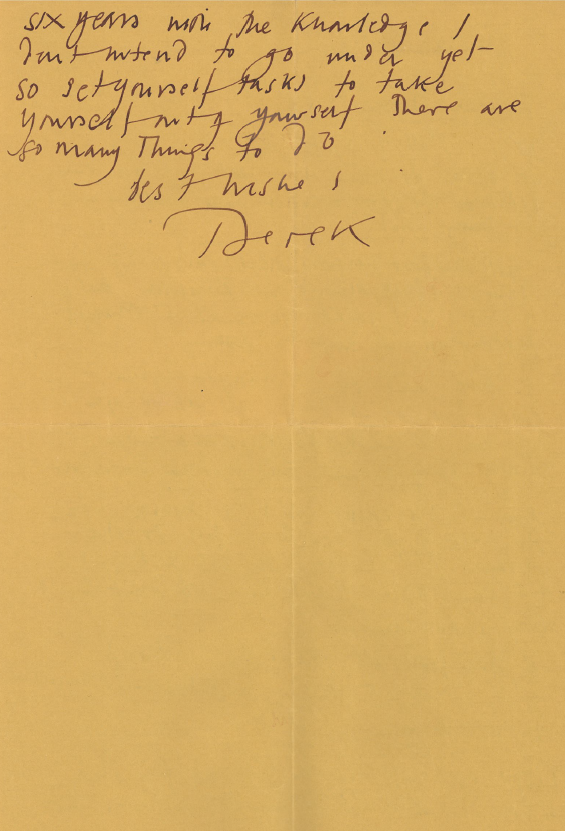 six years with the knowledge I
dont intend to go under yet -
so set yourself tasks to take
yourself out of yourself There are
so many Things to do
best wishes
Derek